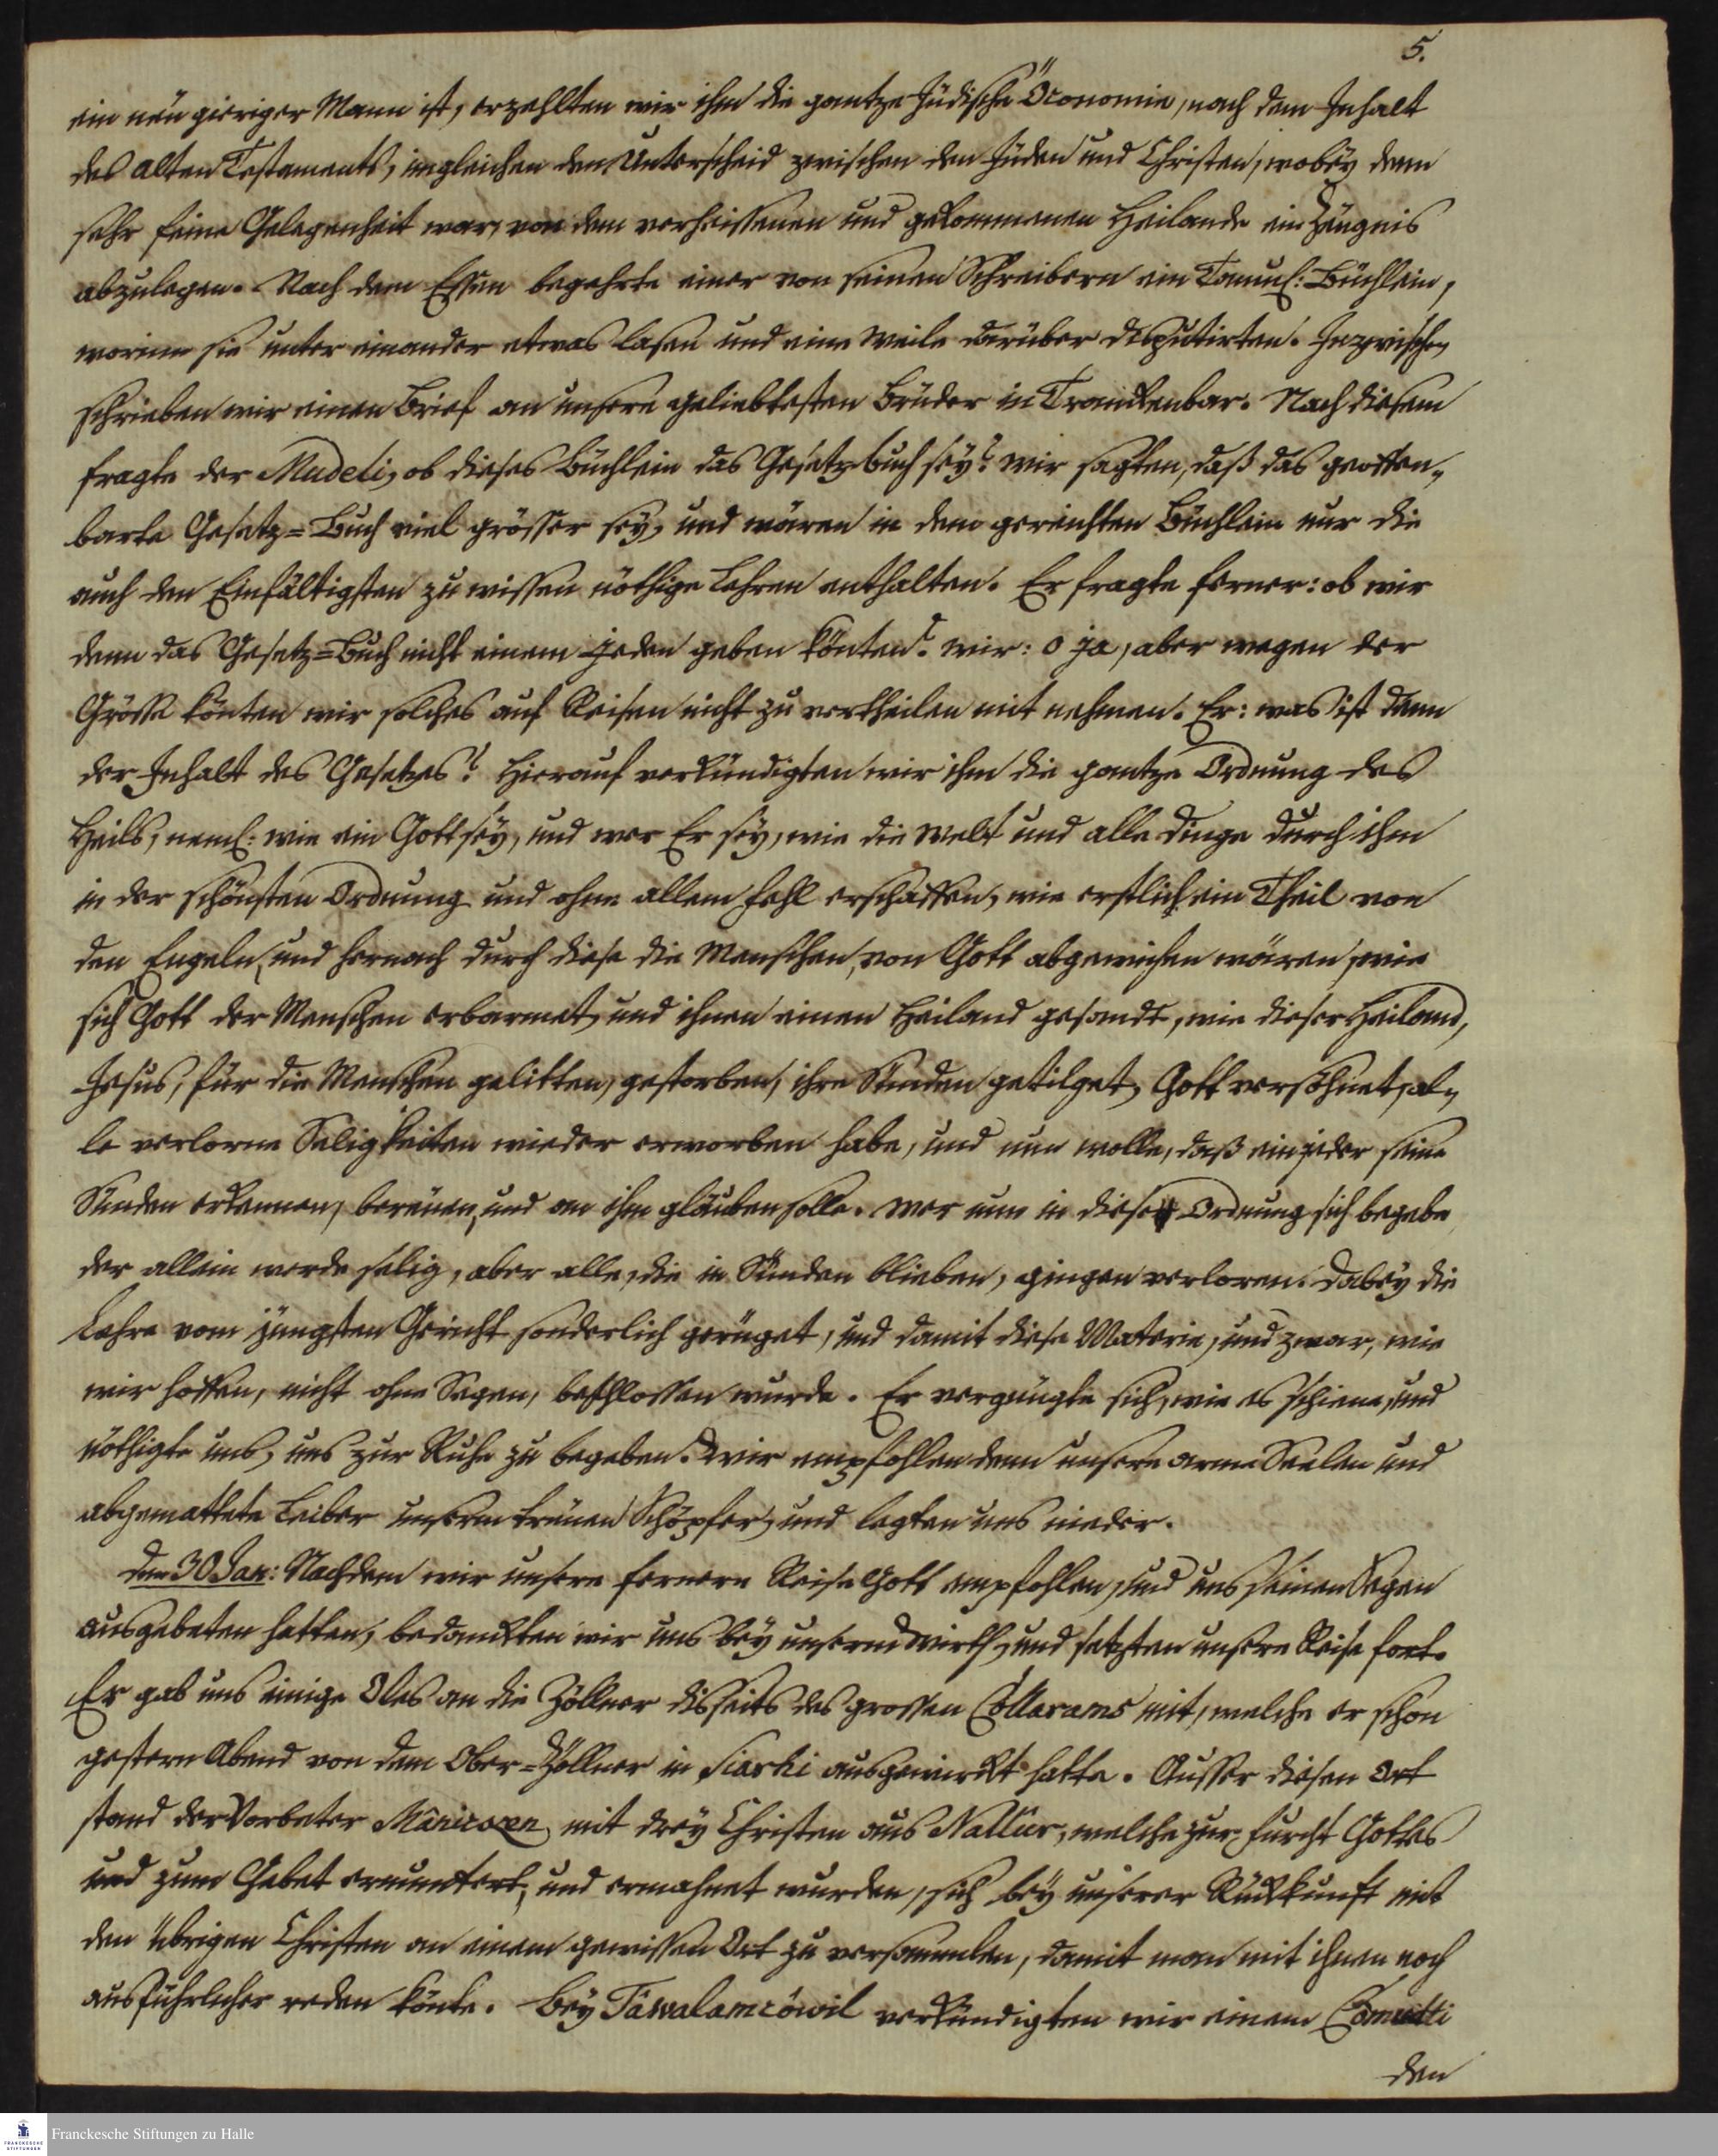 5.
ein neugieriger Mann ist, erzehlten wir ihm die gantze Jüdische Oeconomie, nach dem Inhalt
des alten Testaments, ingleichen den Unterscheid zwischen den Jüden und Christen, wobey denn
sehr feine Gelegenheit war, von dem verheissenen und gekommenen Heilande ein Zeugnis
abzulegen. Nach dem Essen begehrte einer von seinen Schreibern ein Tamul: Büchlein,
worinn sie unter einander etwas lasen und eine Weile darüber disputirten. Inzwischen
schrieben wir einen Brief an unsere geliebtesten Brüder in Trankenbar. Nach diesem
fragte der Mudeli, ob dieses Büchlein das Gesetzbuch sey? wir sagten, daß das geoffen-
barte Gesetz=Buch viel grösser sey, und wären in dem gereichten Büchlein nur die
auch den Einfältigsten zu wissen nöthige Lehren enthalten. Er fragte ferner: ob wir
denn das Gesetz=Buch nicht einem jeden geben könten? wir: o ja, aber wegen der
Grösse könten wir solches auf Reisen nicht zu vertheilen mit nehmen. Er: was ist denn
der Inhalt des Gesetzes? Hierauf verkündigten wir ihm die gantze Ordnung des
Heils, neml: wie ein Gott sey, und wer Er sey, wie die Welt und alle Dinge durch ihn
in der schönsten Ordnung und ohne allem Fehl erschaffen, wie erstlich ein Theil von
den Engeln, und hernach durch diese die Menschen, von Gott abgewichen wären, wie
sich Gott der Menschen erbarmet, und ihnen einen Heiland gesandt, wie dieser Heiland,
Jesus, für die Menschen gelitten, gestorben, ihre Sünden getilget, Gott versöhnet, al-
le verlorne Seligkeiten wieder erworben habe, und nun wolle, daß ein jeder seine
Sünden erkennen, bereuen, und an ihn gläuben solle. Wer nun in diese Ordnung sich begebe
der allein werde selig, aber alle, die in Sünden blieben, gingen verloren. Dabey die
Lehre vom jüngsten Gericht sonderlich gerüget, und damit diese Materie, und zwar, wie
wir hoffen, nicht ohne Segen, beschlossen wurde. Er vergnügte sich, wie es schiene, und
nöthigte uns, uns zur Ruhe zu begeben. Wir empfohlen denn unsere arme Seelen und
abgemattete Leiber unserm treuen Schöpfer, und legten uns nieder.
den 30 Jan: Nachdem wir unsere fernere Reise Gott empfohlen, und uns seinen Segen
ausgebeten hatten, bedankten wir uns bey unserm Wirth, und setzten unsere Reise fort.
Er gab uns einige Oles an die Zöllner disseits des grossen Collarams mit, welche er schon
gestern Abend von dem Ober=Zöllner in Siarhi ausgewirckt hatte. Ausser diesen Ort
stand der Vorbeter Mânicven, mit drey Christen aus Nallûr, welche zur Furcht Gottes
und zum Gebet ermuntert, und ermahnet wurden, sich bey unserer Rückkunft mit
den übrigen Christen an einem gewissen Ort zu versammlen, damit man mit ihnen noch
ausführlicher reden könte. Bey Tâwalamcôwil verkündigten wir einem Comutti
den
Franckesche Stiftungen zu Halle